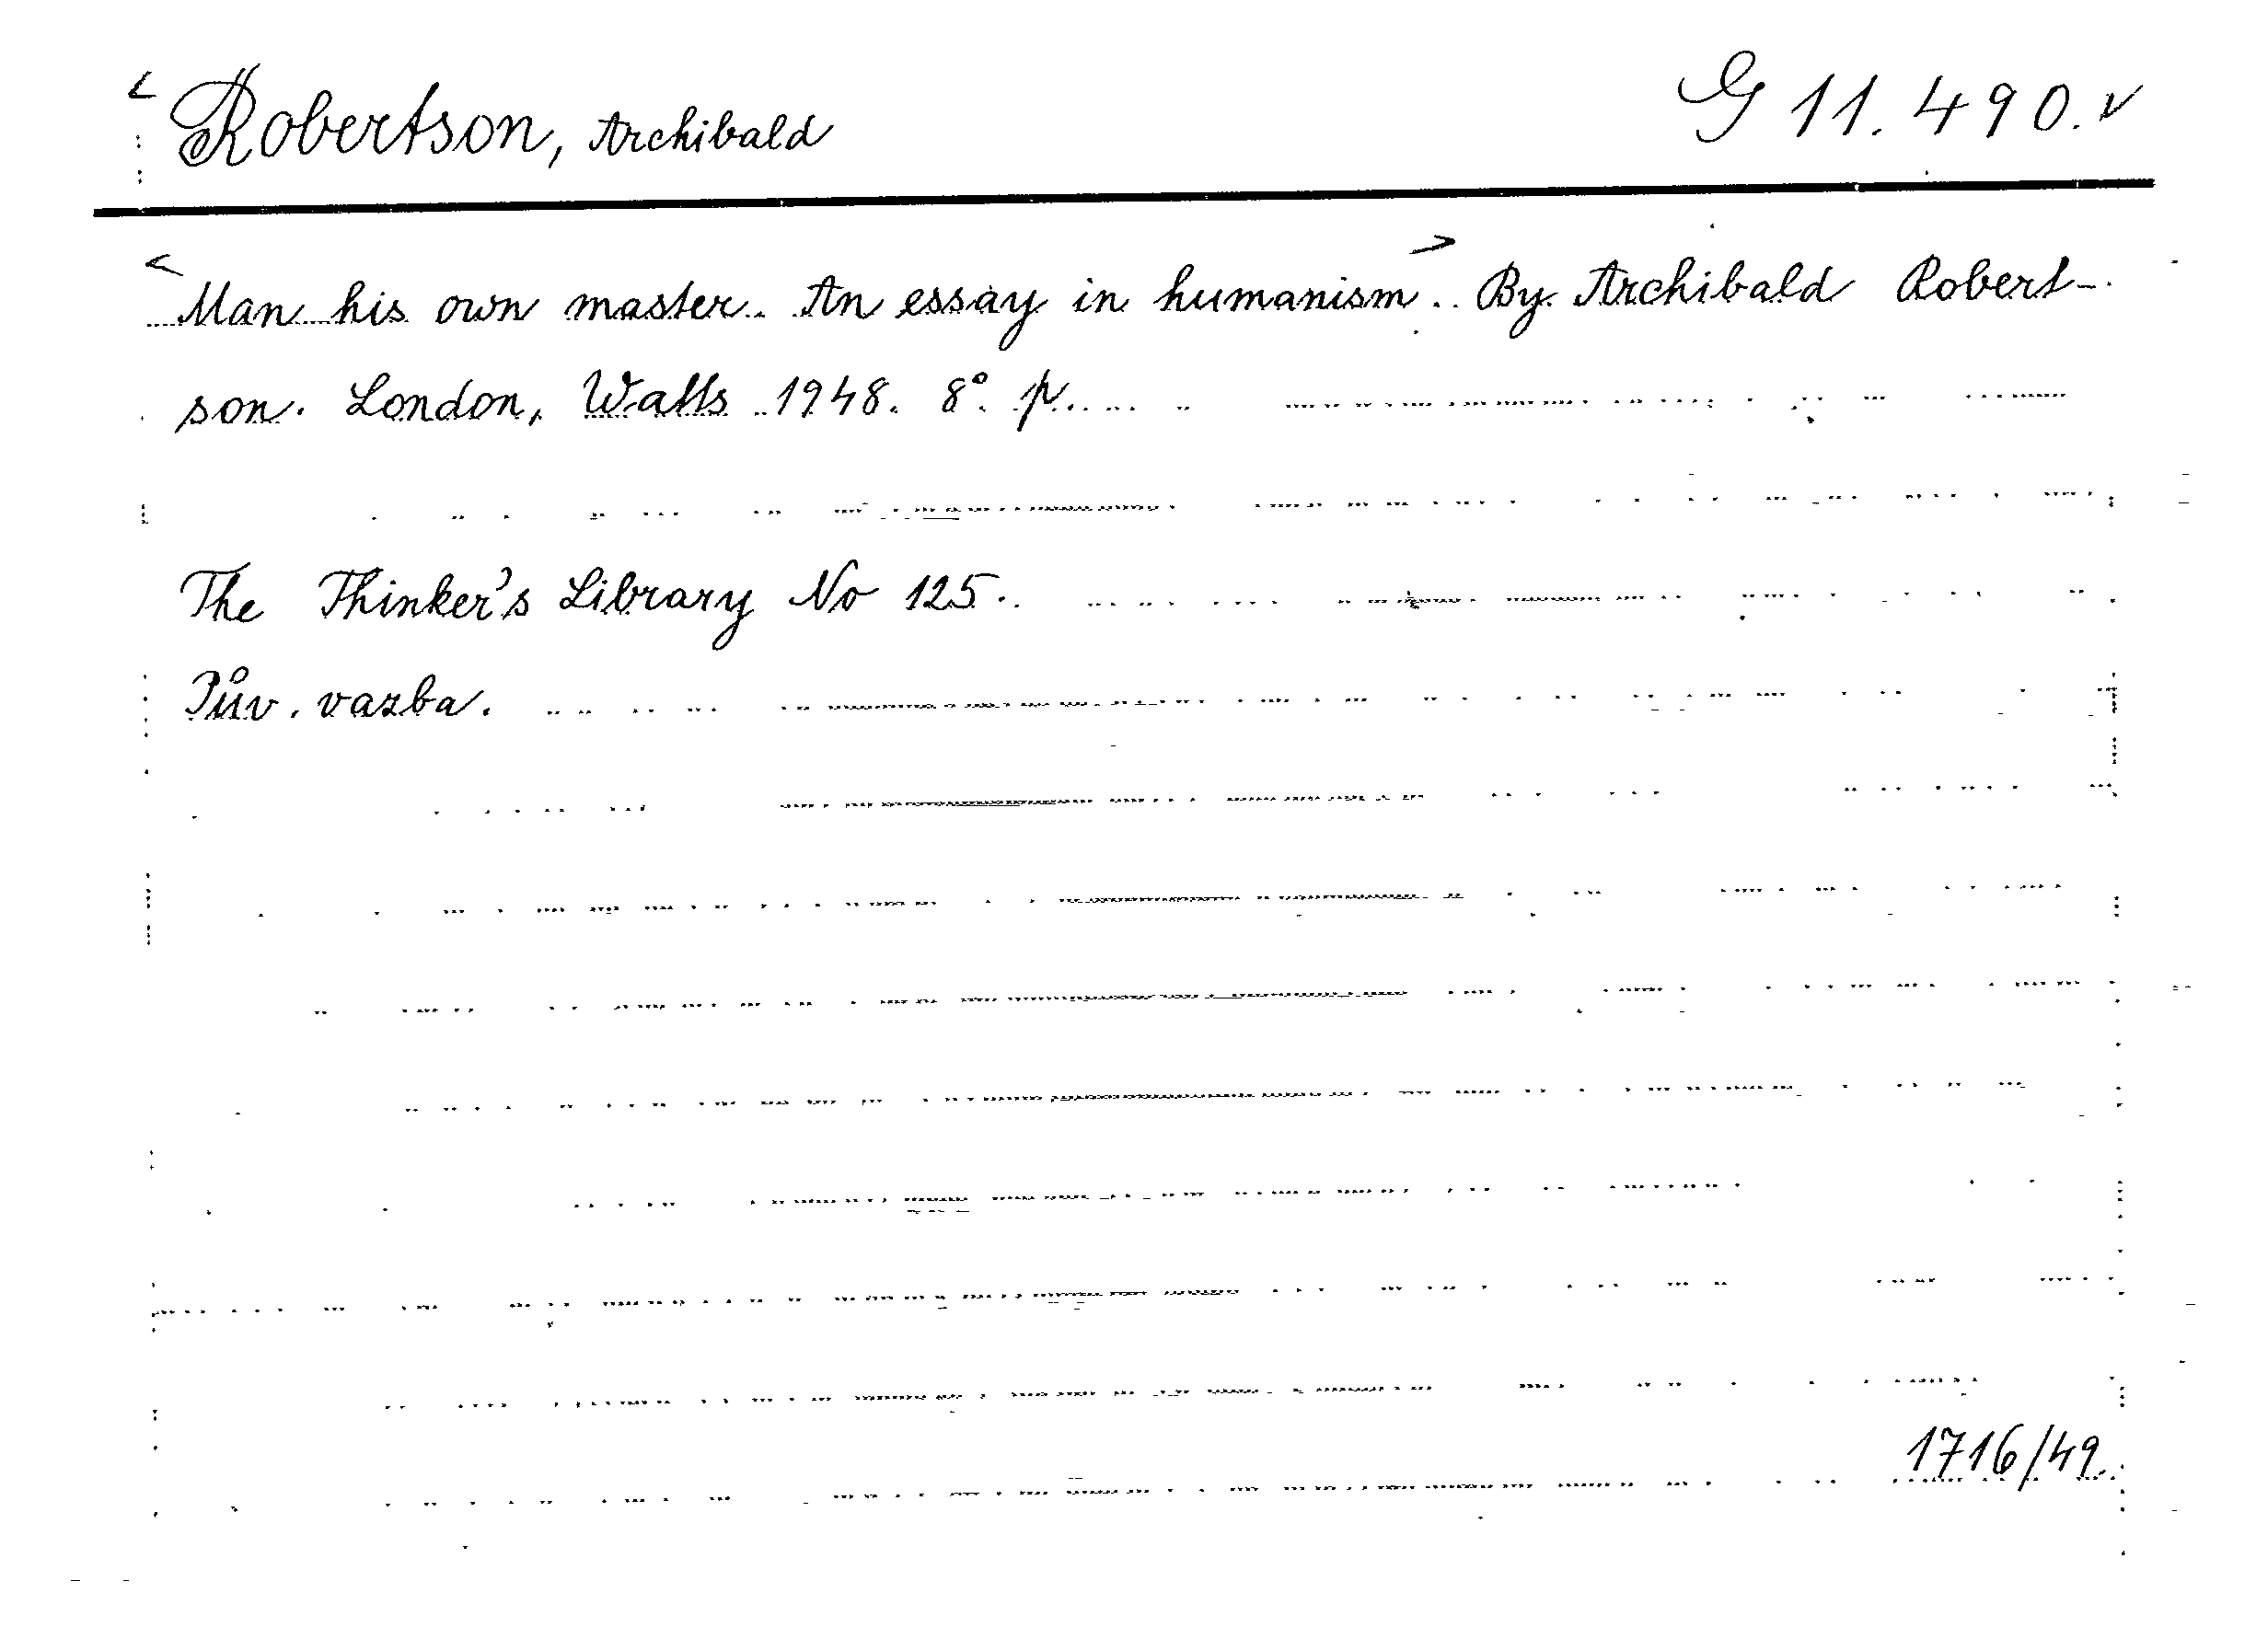 Robertson, Archibald G 11.490.
Man his own master. An essay in humanism. By Archibald Robert-
son. London, Watts 1948. 8°. p.
The Thinker's Library No 125.
Pův. vazba.
1716/49.